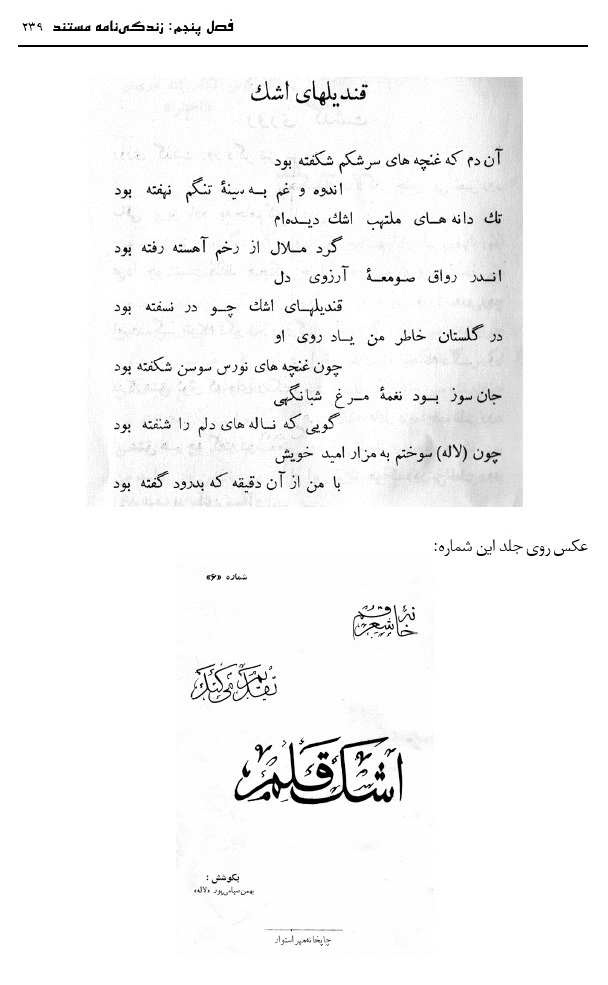 فصل پنجم: زندگی‌نامه مستند ۲۳۹
قندیلهای اشك
آن دم که غنچه های سرشکم شکفته بود
اندوه و غم به سینهٔ تنگم نهفته بود
تك دانه های ملتهب اشك دیده‌ام
گرد ملال از رخم آهسته رفته بود
اندر رواق صومعهٔ آرزوی دل
قندیلهای اشك چو در نسفته بود
در گلستان خاطر من یاد روی او
چون غنچه های نورس سوسن شکفته بود
جان سوز بود نغمهٔ مرغ شبانگهی
گویی که ناله های دلم را شنفته بود
چون (لاله) سوختم به مزار امید خویش
با من از آن دقیقه که بدرود گفته بود
عکس روی جلد این شماره:
شماره «۶»
خانهٔ شعر قم
تقدیم می‌کند
اشک قلم
بکوشش :
بهمن سیامی‌پور «لاله»
چاپخانه مهر استوار